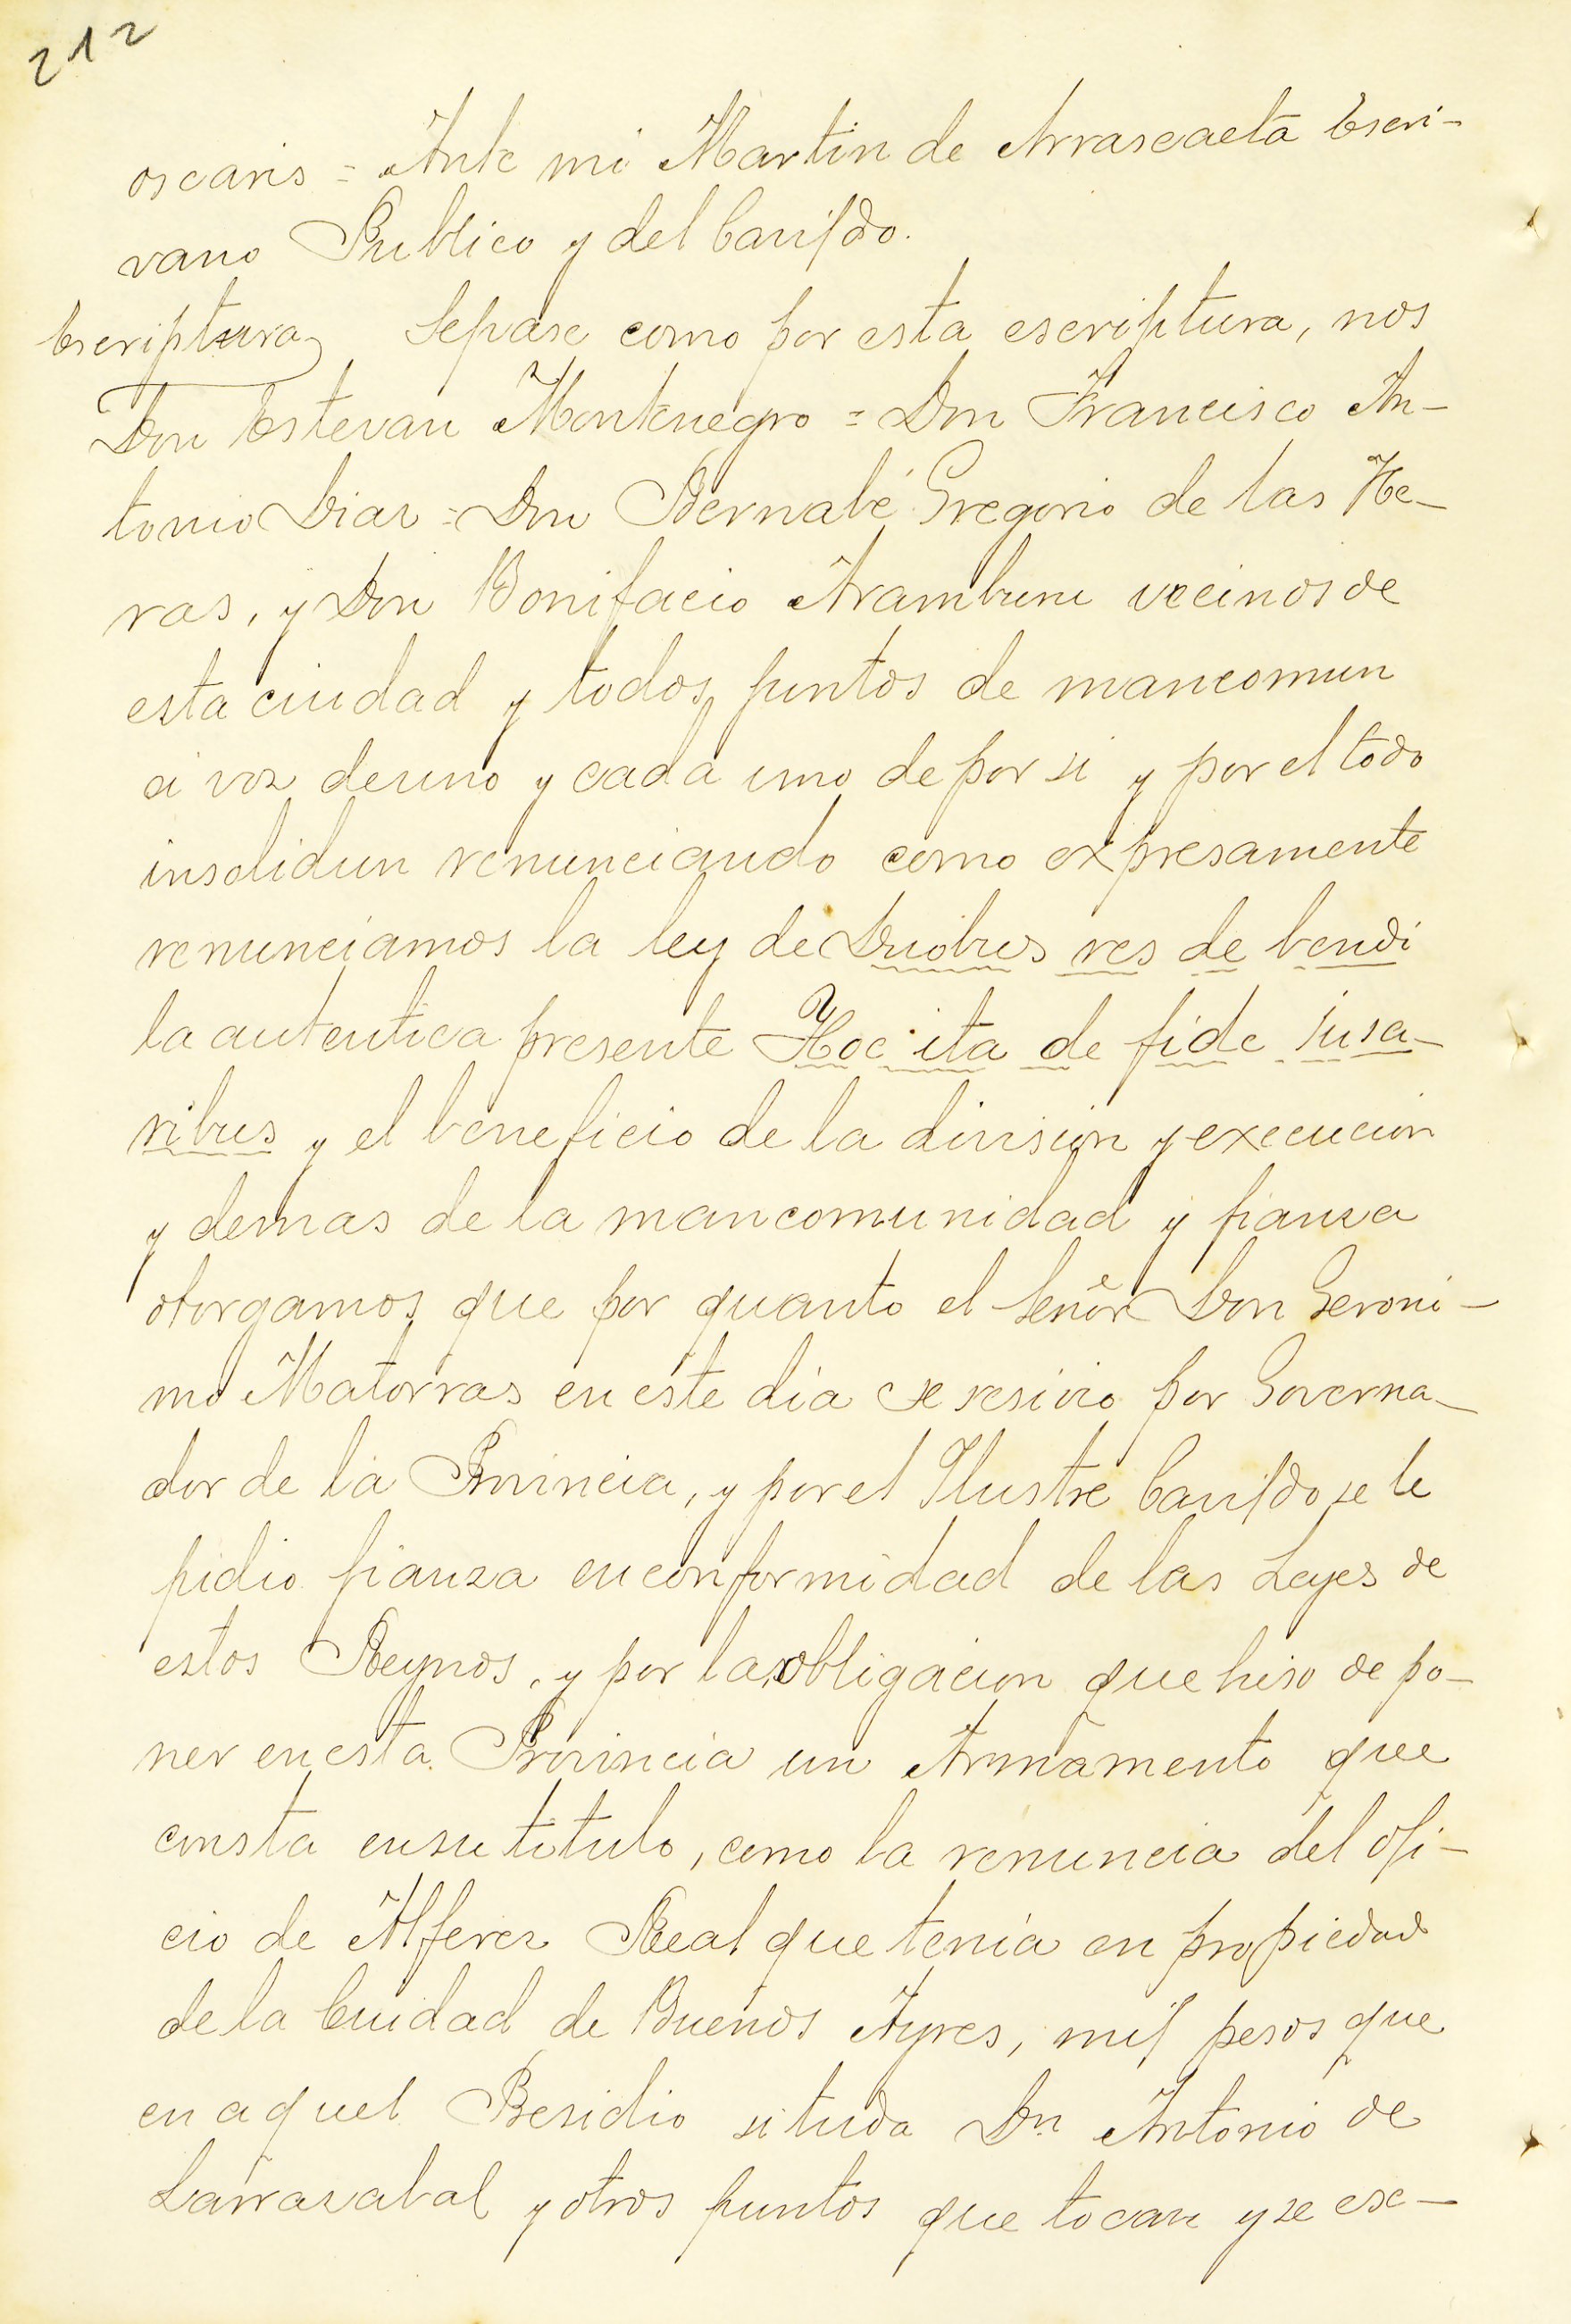 212
oscaris = Ante mi Martin de Arrascaeta Escri-
vano Publico y del Cavildo.
Escriptura Sepase como por esta escriptura, nos
Don Estevan Montenegro = Don Francisco An-
tonio Diaz = Don Bernabé Gregorio de las He-
ras, y Don Bonifacio Aramburu vecinos de
esta ciudad y todos juntos de mancomun
á voz de uno y cada uno de por si y por el todo
insolidun renunciando como expresamente
renunciamos la ley de Duobus res de bendi
la autentica presente Hoc ita de fide jusa-
ribus y el beneficio de la division y execucion
y demas de la mancomunidad y fianza
otorgamos que por quanto el Señor Don Geroni-
mo Matorras en este dia se resivio por Governa-
dor de la Provincia, y por el Ilustre Cavildo se le
pidio fianza en conformidad de las Leyes de
estos Reynos, y por la obligacion que hiso de po-
ner en esta Provincia un Armamento que
consta en su titulo, como la renuncia del ofi-
cio de Alferez Real que tenia en propiedad
de la Ciudad de Buenos Ayres, mil pesos que
en aquel Presidio situda Dn Antonio de
Larrazabal y otros puntos que tocan y se exe-